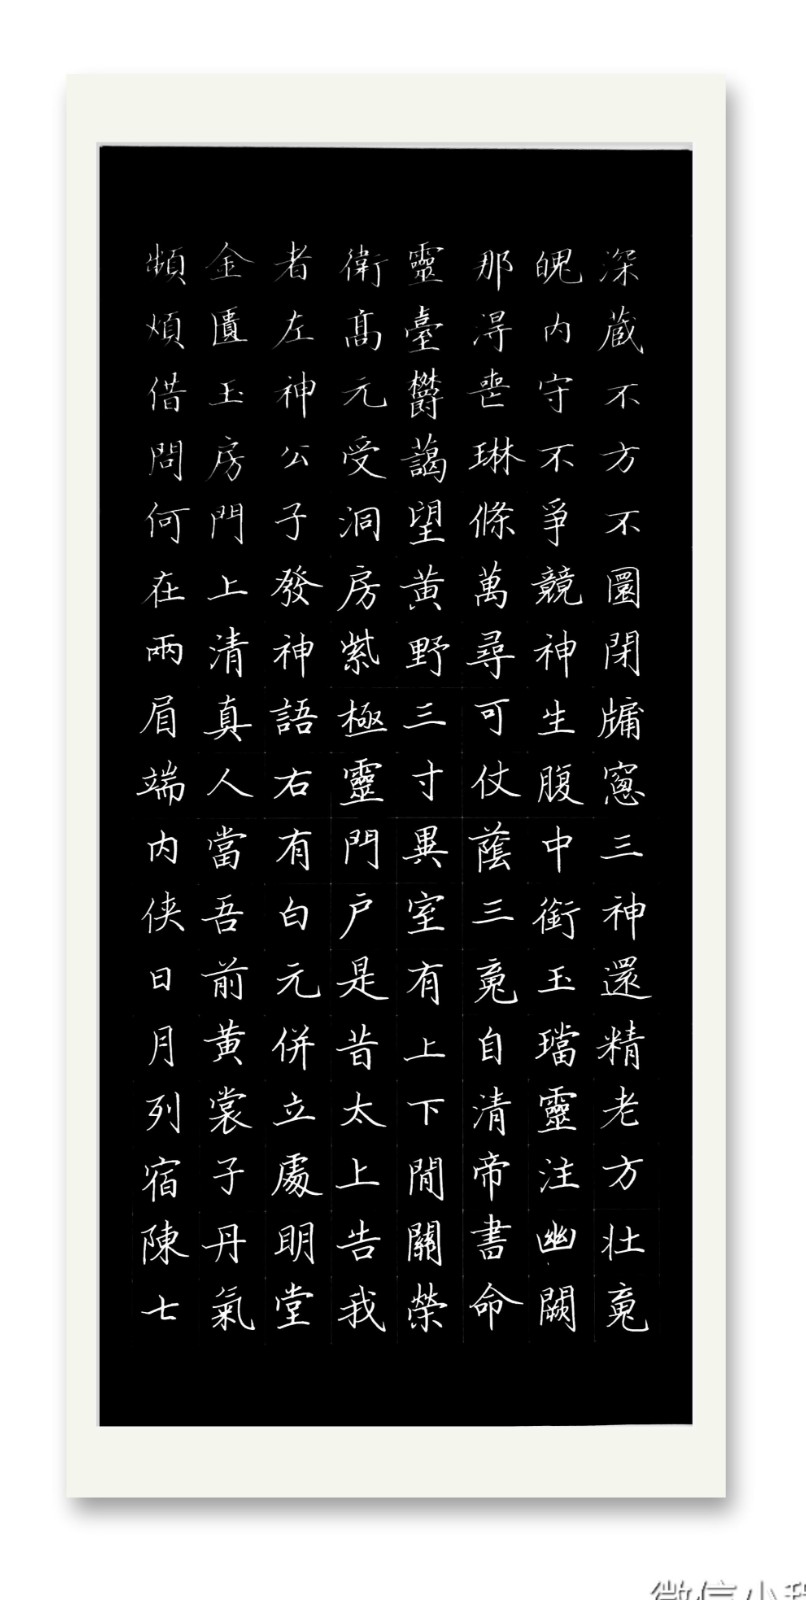 深藏不方不圜閉牖窻三神還精老方壯䰟
魄内守不爭競神生腹中銜玉璫靈注幽闕
那淂喪琳條萬尋可仗蔭三䰟自清帝書命
靈臺欝藹望黃野三寸異室有上下閒關榮
衛髙元受洞房紫極靈門户是昔太上告我
者左神公子發神語右有白元併立處明堂
金匱玉房門上清真人當吾前黃裳子丹氣
頻煩借問何在兩眉端内俠日月列宿陳七
微信小程